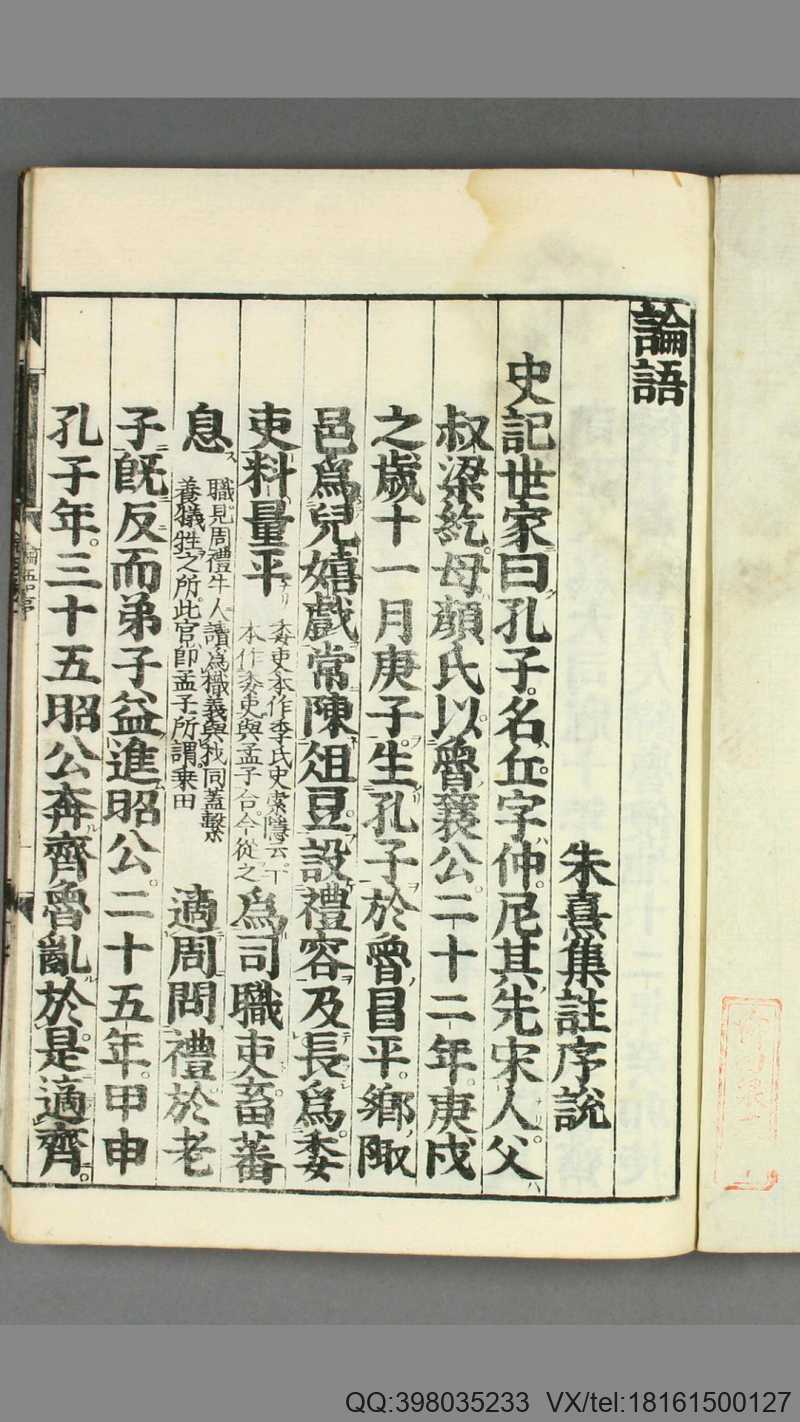 論語
朱熹集註序說
史記世家曰孔子名丘字仲尼其先宋人父
叔梁紇母顏氏以魯襄公二十二年庚戌
之歲十一月庚子生孔子於魯昌平鄉陬
邑爲兒嬉戲常陳俎豆設禮容及長爲委
吏料量平
委吏本作季氏史索隱云一
本作委吏與孟子合今從之
爲司職吏畜蕃
息
職見周禮牛人讀爲樴義與杙同蓋繫
養犧牲之所此官卽孟子所謂乘田
適周問禮於老
子旣反而弟子益進昭公二十五年甲申
孔子年三十五昭公奔齊魯亂於是適齊
QQ:398035233 VX/tel:18161500127